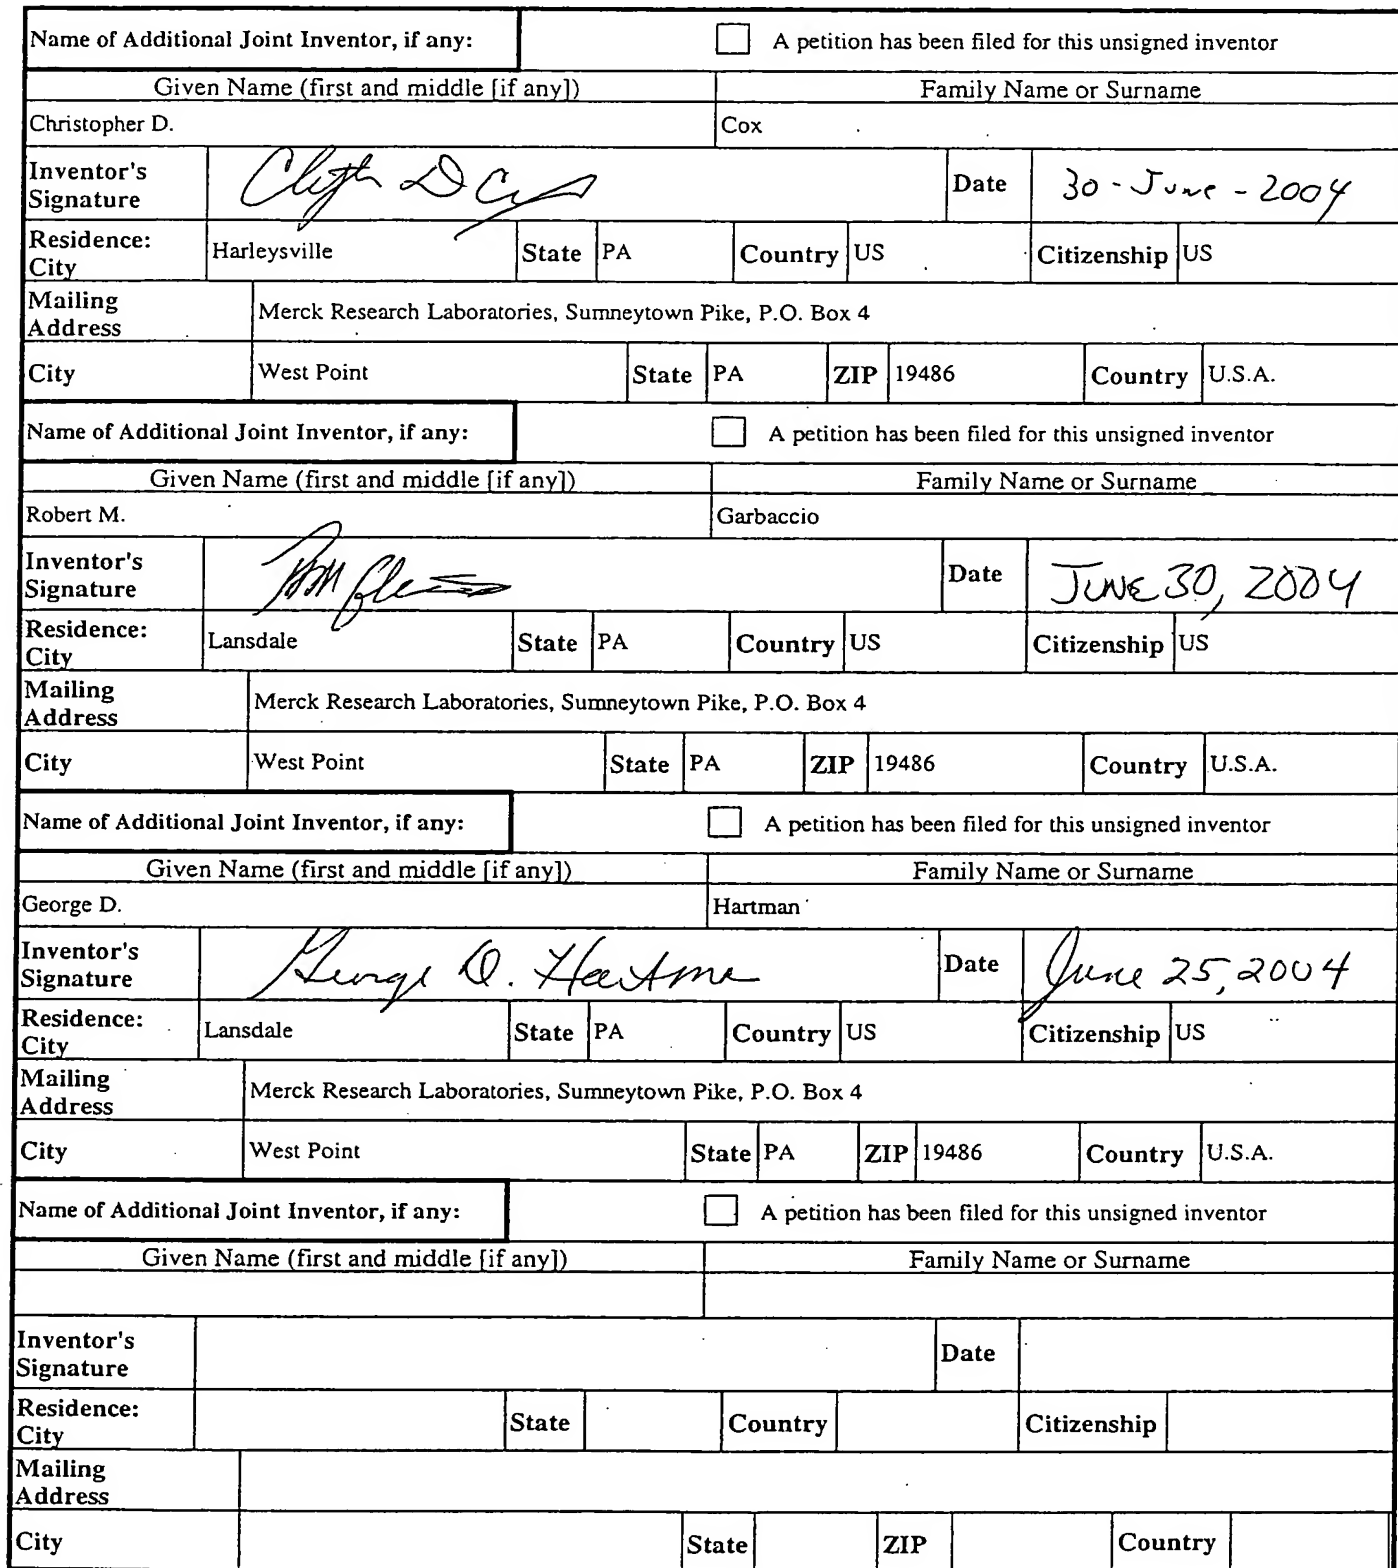 Name of Additional Joint Inventor, if any: A petition has been filed for this unsigned inventor
Given Name (first and middle [if any]) Family Name or Surname
Christopher D. Cox
Inventor's
Signature Date 30-June-2004
Residence:
City Harleysville State PA Country US Citizenship US
Mailing
Address Merck Research Laboratories, Sumneytown Pike, P.O. Box 4
City West Point State PA ZIP 19486 Country U.S.A.
Name of Additional Joint Inventor, if any: A petition has been filed for this unsigned inventor
Given Name (first and middle [if any]) Family Name or Surname
Robert M. Garbaccio
Inventor's
Signature Date JUNE 30, 2004
Residence:
City Lansdale State PA Country US Citizenship US
Mailing
Address Merck Research Laboratories, Sumneytown Pike, P.O. Box 4
City West Point State PA ZIP 19486 Country U.S.A.
Name of Additional Joint Inventor, if any: A petition has been filed for this unsigned inventor
Given Name (first and middle [if any]) Family Name or Surname
George D. Hartman
Inventor's
Signature George D. Hartman Date June 25, 2004
Residence:
City Lansdale State PA Country US Citizenship US
Mailing
Address Merck Research Laboratories, Sumneytown Pike, P.O. Box 4
City West Point State PA ZIP 19486 Country U.S.A.
Name of Additional Joint Inventor, if any: A petition has been filed for this unsigned inventor
Given Name (first and middle [if any]) Family Name or Surname
Inventor's
Signature Date
Residence:
City State Country Citizenship
Mailing
Address
City State ZIP Country